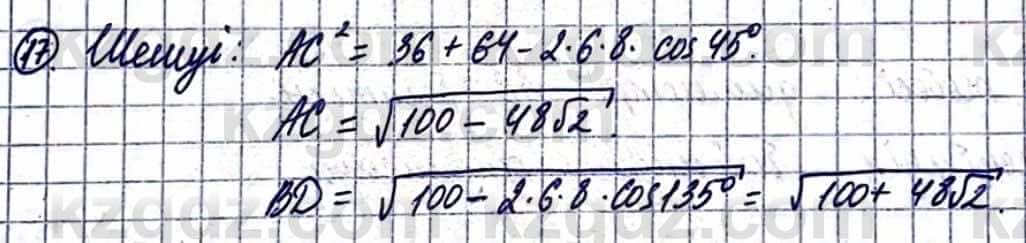 17. Шешуі: AC² = 36 + 64 - 2·6·8· cos 45°.
AC = √(100 - 48√2).
BD = √(100 - 2·6·8·cos135°) = √(100 + 48√2).
kzgdz.com